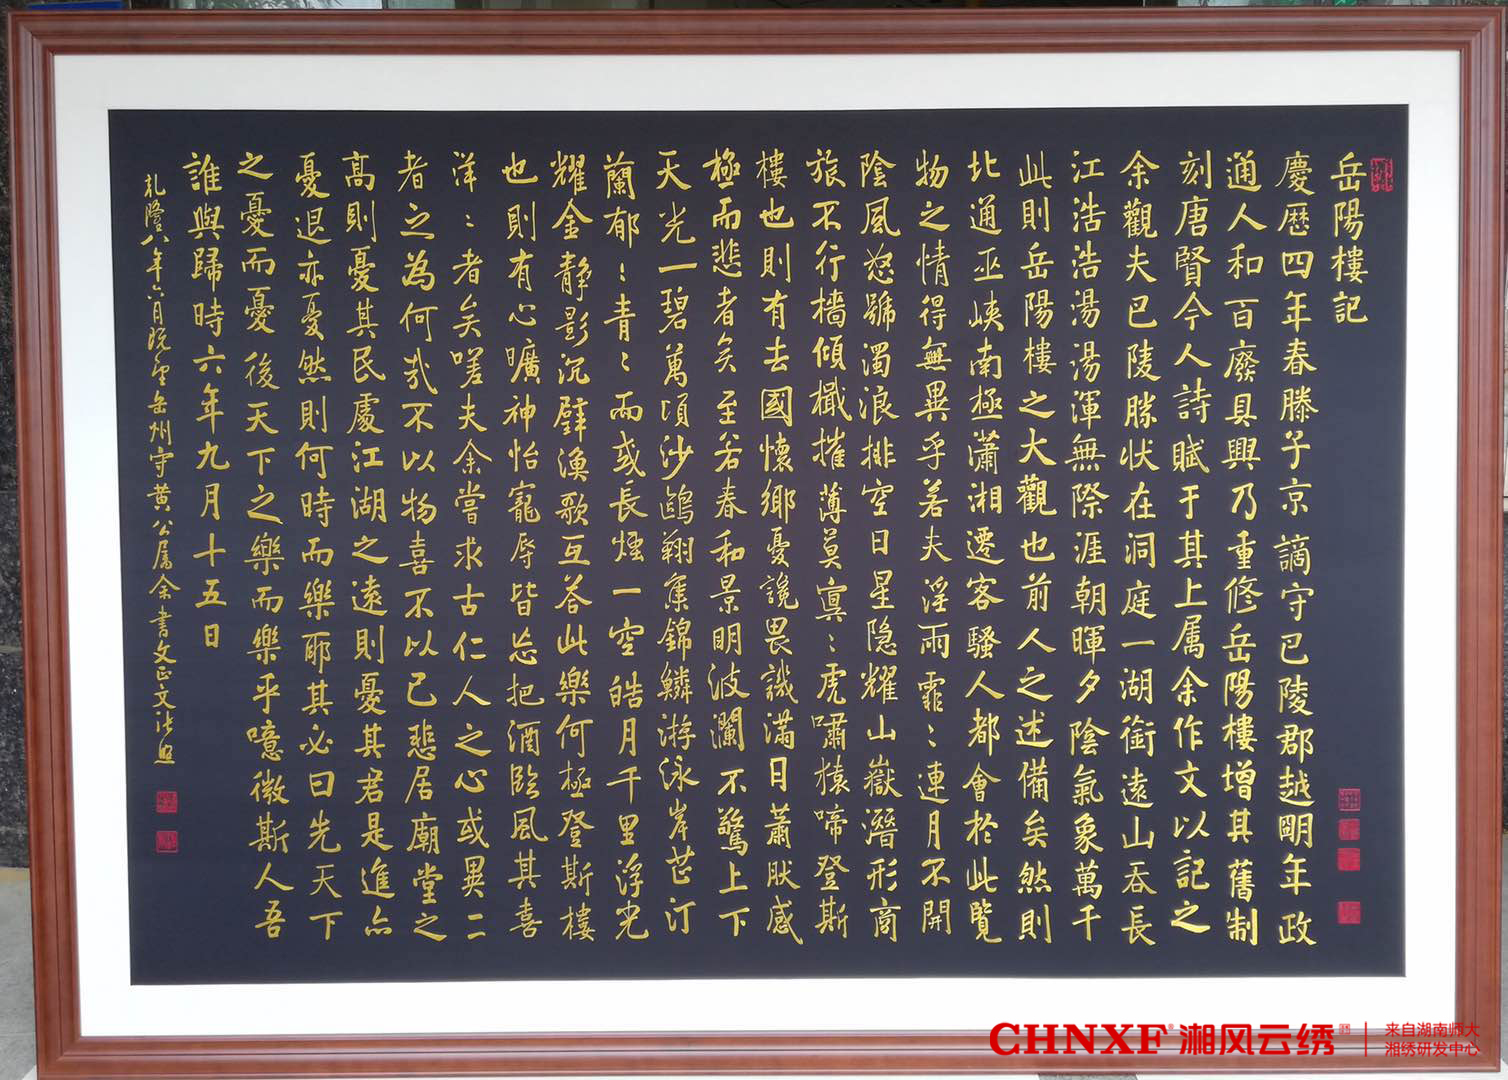 岳陽樓記
慶歷四年春滕子京謫守巴陵郡越明年政
通人和百廢具興乃重修岳陽樓增其舊制
刻唐賢今人詩賦于其上属余作文以記之
余觀夫巴陵勝状在洞庭一湖銜遠山吞長
江浩浩湯湯渾無際涯朝暉夕陰氣象萬千
此則岳陽樓之大觀也前人之述備矣然則
北通巫峡南極瀟湘遷客騷人都會於此覽
物之情得無異乎若夫淫雨霏〻連月不開
陰風怒號濁浪排空日星隐耀山嶽潛形商
旅不行檣傾檝摧薄莫冥〻虎嘯猿啼登斯
樓也則有去國懷鄉憂讒畏譏滿目蕭然感
極而悲者矣至若春和景明波瀾不驚上下
天光一碧萬頃沙鷗翔集錦鱗游泳岸芷汀
蘭郁〻青〻而或長煙一空皓月千里浮光
耀金静影沉璧漁歌互答此樂何極登斯樓
也則有心曠神怡寵辱皆忘把酒臨風其喜
洋〻者矣嗟夫余嘗求古仁人之心或異二
者之為何哉不以物喜不以己悲居廟堂之
高則憂其民處江湖之遠則憂其君是進亦
憂退亦憂然則何時而樂耶其必曰先天下
之憂而憂後天下之樂而樂乎噫微斯人吾
誰與歸時六年九月十五日
乾隆八年六月既望岳州守黄公属余書文正文張照
CHNXF 湘风云绣
来自湖南师大
湘绣研发中心